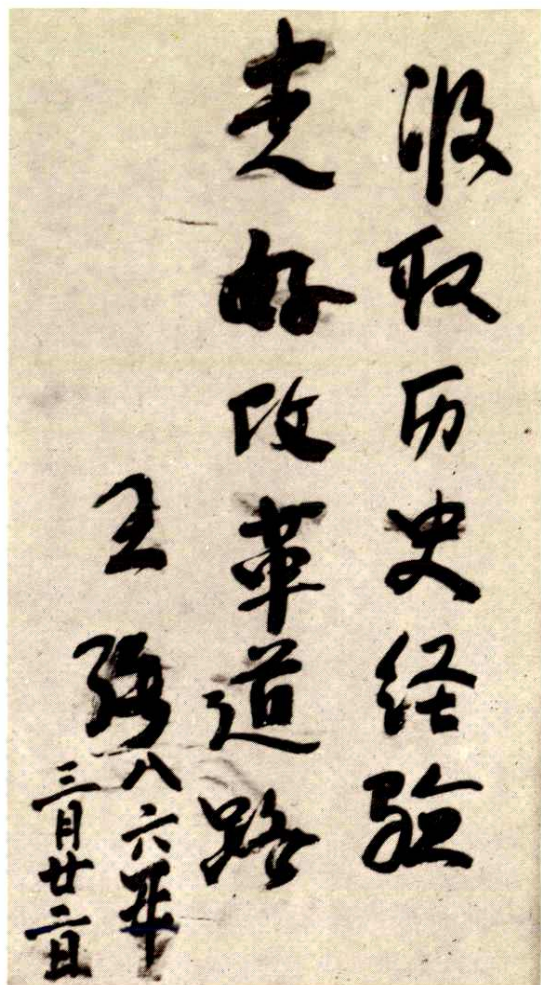 汲取历史经验
走好改革道路
王强
八六年
三月廿二日